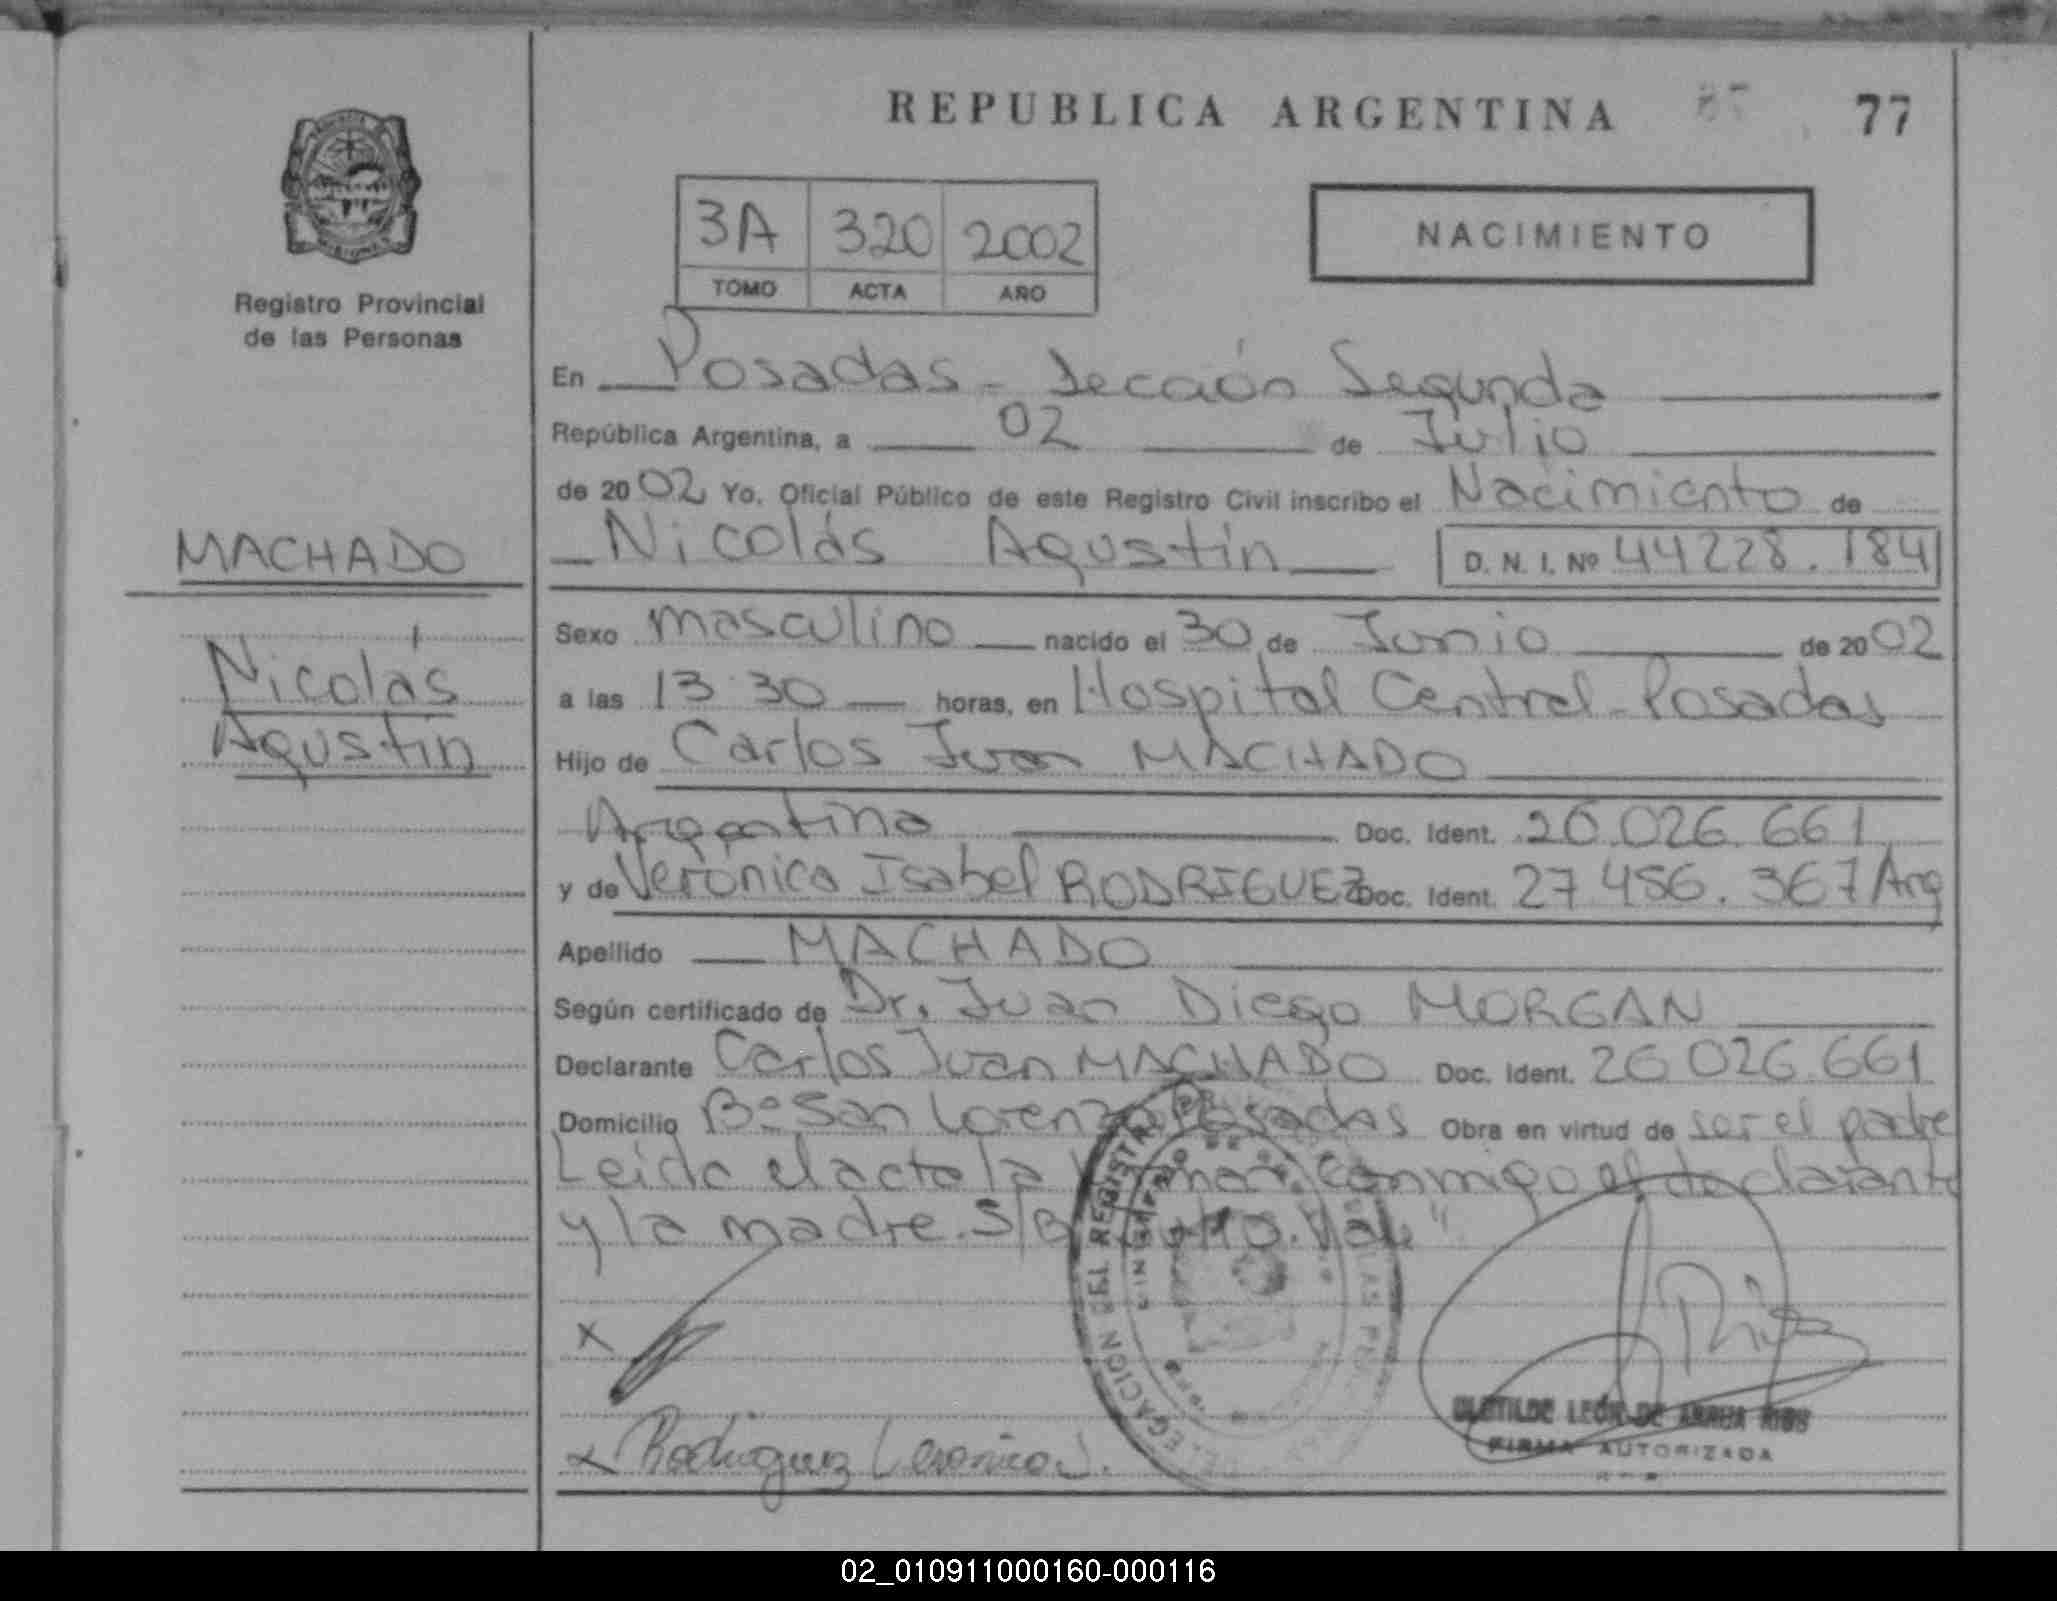 REPUBLICA ARGENTINA 77
3A 320 2002
TOMO ACTA AÑO
NACIMIENTO
Registro Provincial
de las Personas
En Posadas - Sección Segunda
República Argentina, a 02 de Julio
de 2002 Yo, Oficial Público de este Registro Civil inscribo el Nacimiento de
Nicolás Agustín D. N. I. Nº 44228.184
MACHADO
Nicolás
Agustín
Sexo masculino nacido el 30 de Junio de 2002
a las 13:30 horas, en Hospital Central - Posadas
Hijo de Carlos Juan MACHADO
Argentina Doc. Ident. 26.026.661
y de Verónica Isabel RODRIGUEZ Doc. Ident. 27.456.367 Arg
Apellido MACHADO
Según certificado de Dr. Juan Diego MORGAN
Declarante Carlos Juan MACHADO Doc. Ident. 26 026.661
Domicilio Bº San Lorenzo Posadas Obra en virtud de ser el padre
Leida el acta la conmigo el declarante
y la madre. S/B Vale"
X
DELEGACION DEL REGISTRO
x Rodriguez Veronica I.
CLOTILDE LEÓN DE ARRUA RIOS
FIRMA AUTORIZADA
02_010911000160-000116